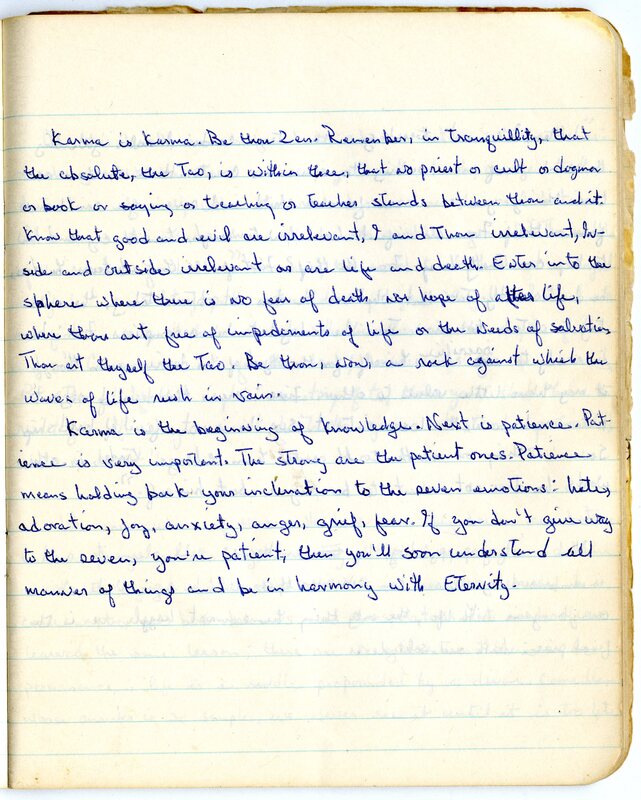 Karma is Karma. Be thou Zen. Remember, in tranquillity, that
the absolute, the Tao, is within thee, that no priest or cult or dogma
or book or saying or teaching or teacher stands between thou and it.
Know that good and evil are irrelevant, I and Thou irrelevant, In-
side and outside irrelevant as are life and death. Enter into the
sphere where there is no fear of death nor hope of after life,
where thou art free of impediments of life or the needs of salvation.
Thou art thyself the Tao. Be thou, now, a rock against which the
waves of life rush in vain.
Karma is the beginning of knowledge. Next is patience. Pat-
ience is very important. The strong are the patient ones. Patience
means holding back your inclination to the seven emotions: hate,
adoration, joy, anxiety, anger, grief, fear. If you don't give way
to the seven, you're patient, then you'll soon understand all
manner of things and be in harmony with Eternity.